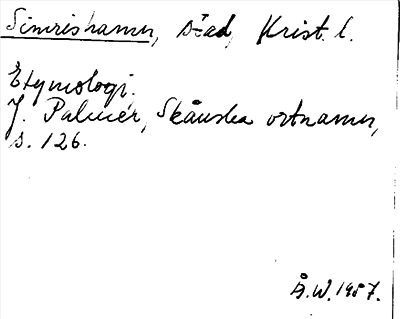 Simrishamn, stad, Krist. l.
Etymologi.
J. Palmér, Skånska ortnamn,
s. 126.
Å.W. 1957.